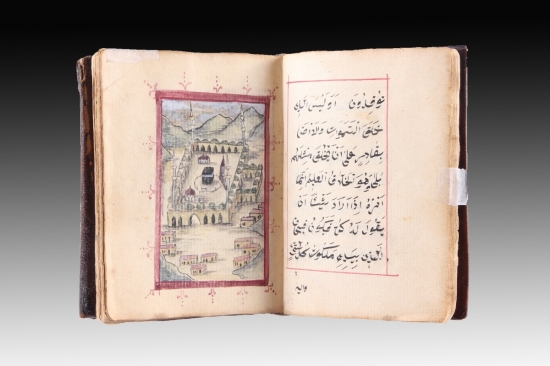 توقدون اوليس الذى
خلق السموات والارض
بقادر على ان يخلق مثلهم
بلى وهو الخلاق العليم انما
امره اذا اراد شيئا ان
يقول له كن فيكون فسبحان
الذى بيده ملكوت كل شئ
واليه